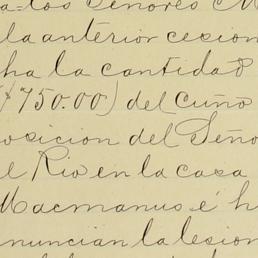 a=los Señores M
la anterior cesion
ha la cantidad
($750.00) del Cuño
osicion del Seño
el Rio en la casa
Macmanus é h
nuncian la lesion